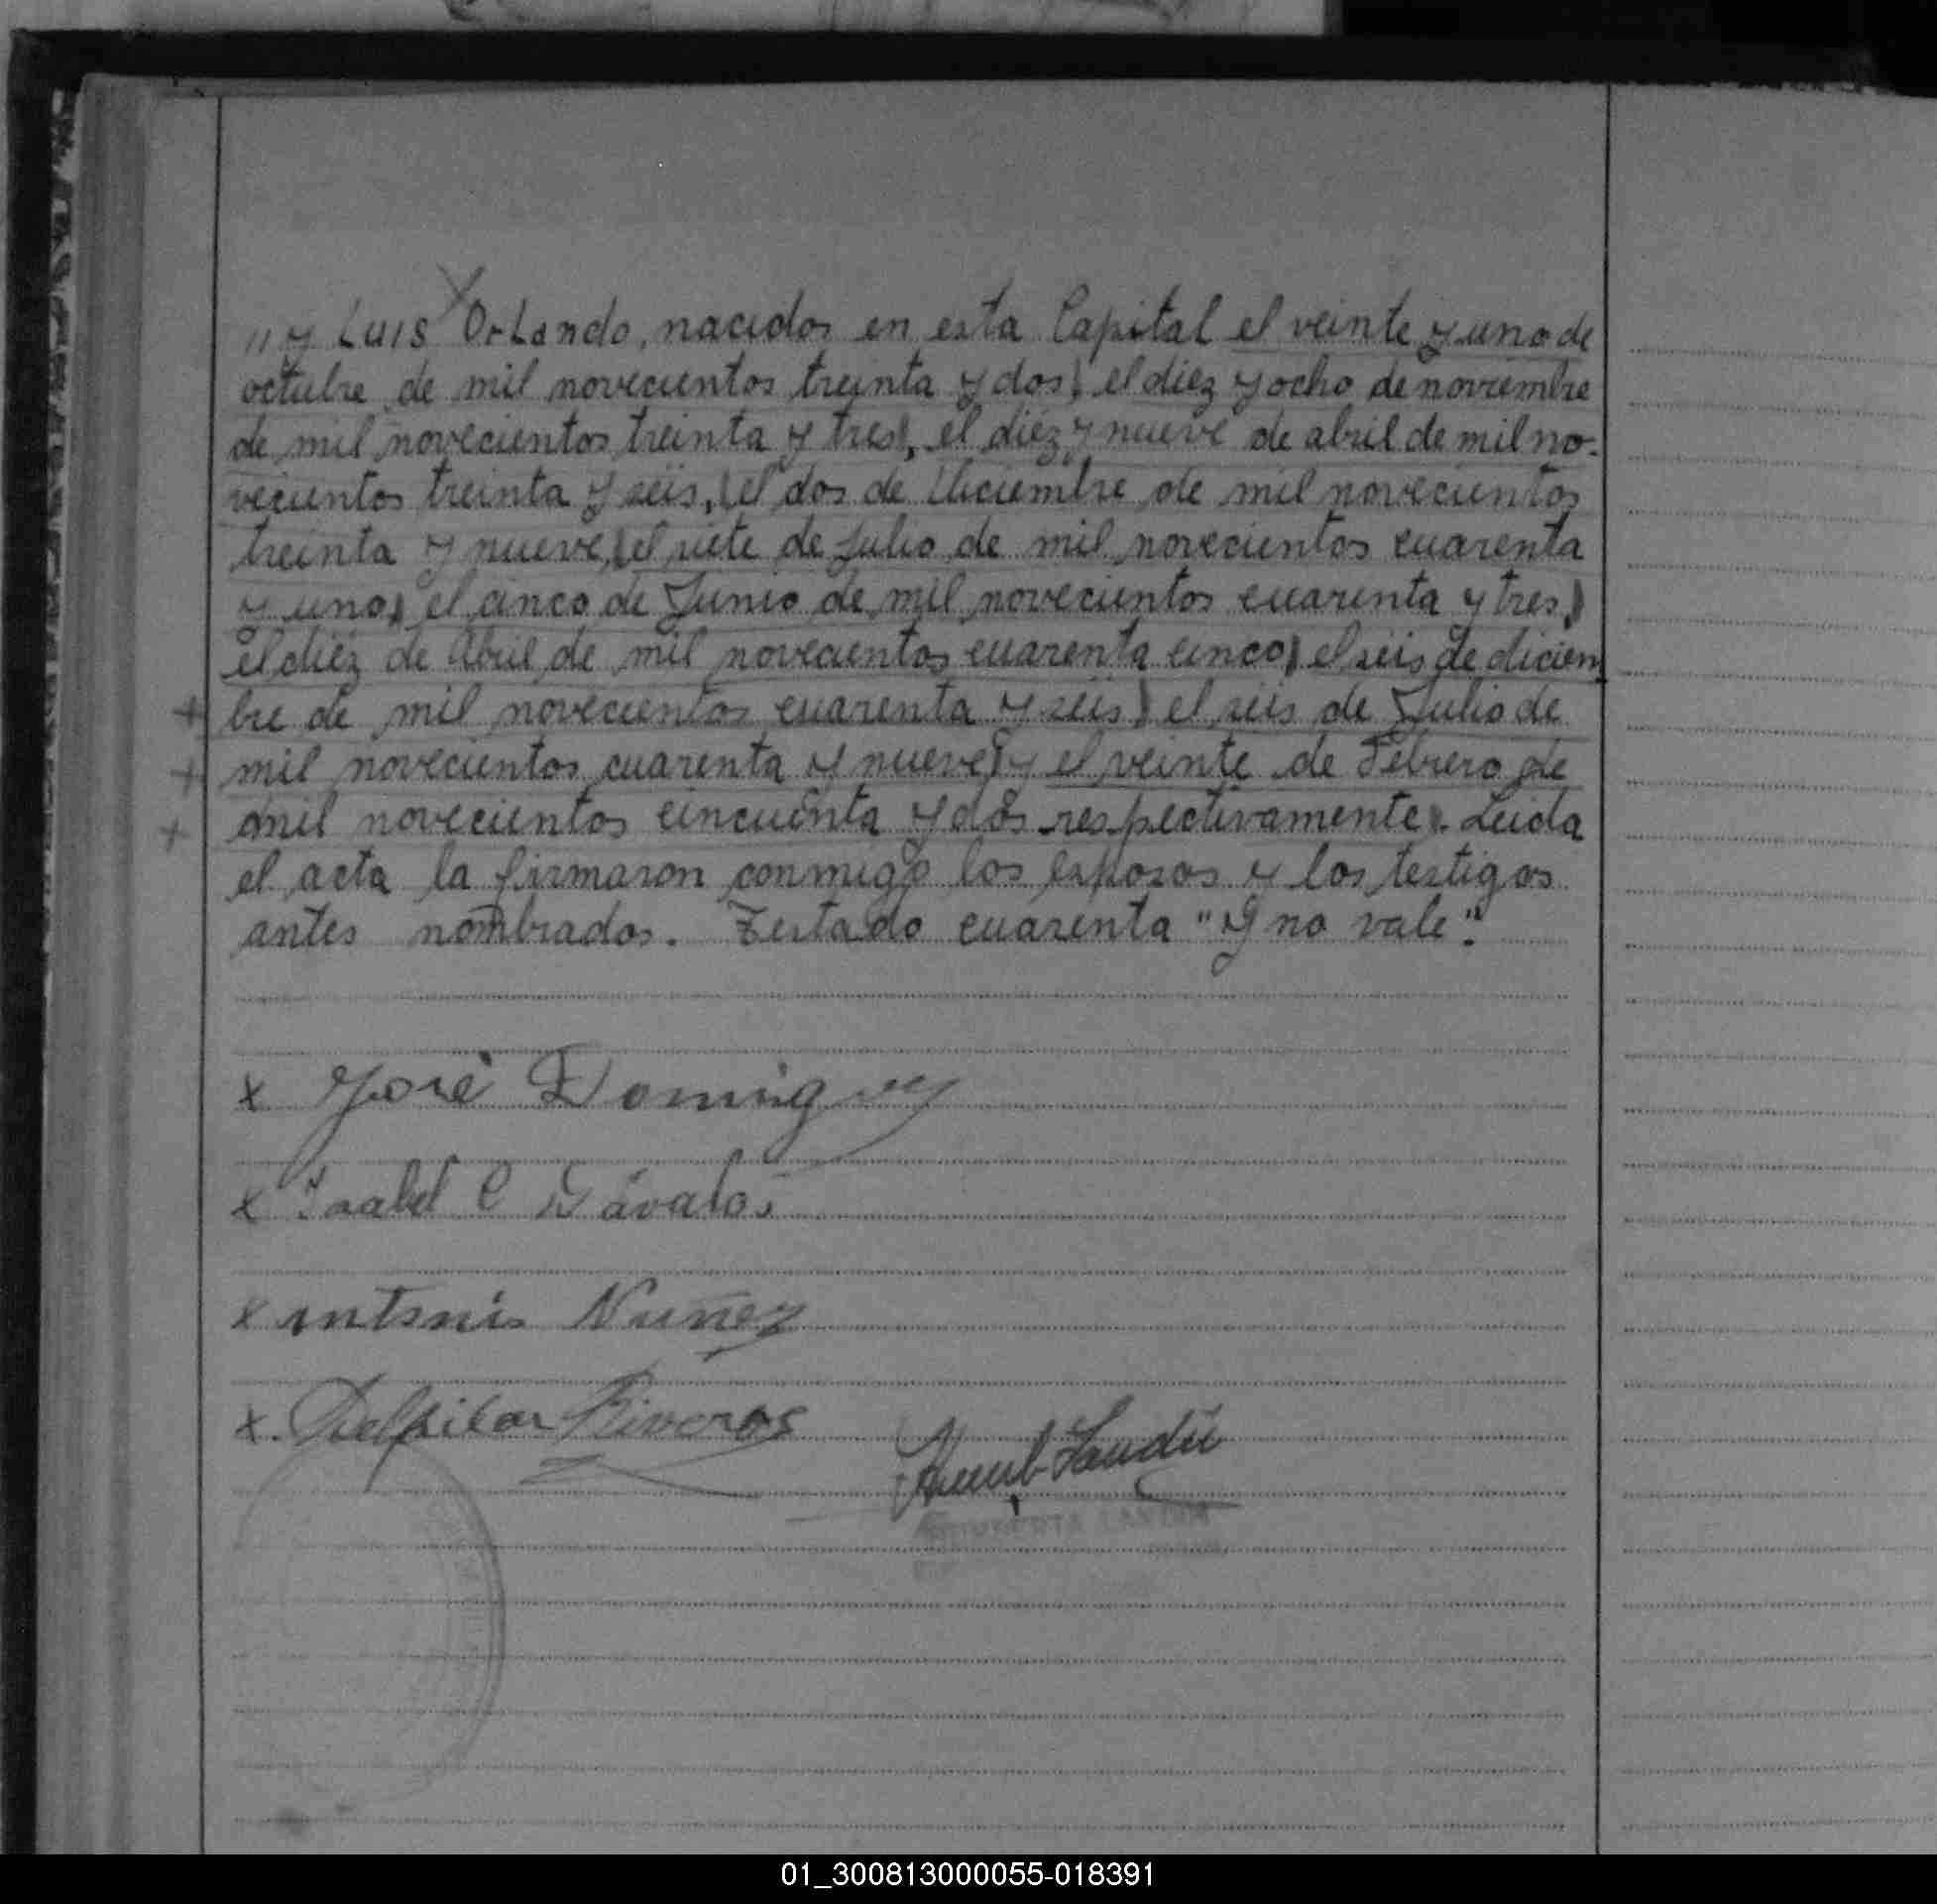 " y Luis Orlando, nacidos en esta Capital el veinte y uno de
octubre de mil novecientos treinta y dos, el diez y ocho de noviembre
de mil novecientos treinta y tres, el diez y nueve de abril de mil no-
vecientos treinta y seis, el dos de Diciembre de mil novecientos
treinta y nueve, el siete de Julio de mil novecientos cuarenta
y uno, el cinco de Junio de mil novecientos cuarenta y tres,
el diéz de Abril de mil novecientos cuarenta cinco, el seis de diciem
bre de mil novecientos cuarenta y seis, el seis de Julio de
mil novecientos cuarenta y nueve y el veinte de Febrero de
mil novecientos cincuenta y dos respectivamente. Leida
el acta la firmaron conmigo los esposos y los testigos
antes nombrados. Testado cuarenta "y no vale".
x José Dominguez
x Isabel C Dávalos
x Antonio Nuñez
x Delpilar Riveros
Humb Landó
HUMBERTA
01_300813000055-018391